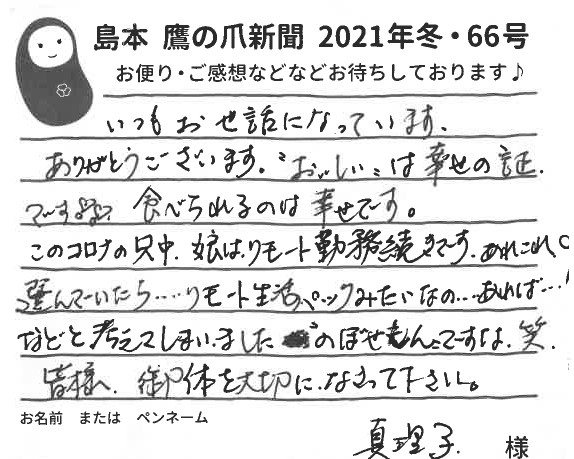 島本 鷹の爪新聞 2021年冬・66号
お便り・ご感想などなどお待ちしております♪
いつもお世話になっています。
ありがとうございます。〝おいしい〟は幸せの証。
ですよね。食べられるのは幸せです。
このコロナの只中、娘はリモート勤務続きです。あれこれ
選んでいたら……リモート生活パックみたいなの…あれば…!
などと考えてしまいました のぼせもんですね、笑。
皆様へ、御身体を大切になさって下さい。
お名前 または ペンネーム
真理子 様